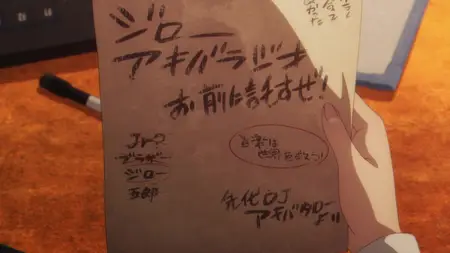 ジロー
アキバラジオ
お前に託すぜ!
Jr♡
ブラザー
ジロー
五郎
音楽は
世界を
先代DJ
アキバタロー
より